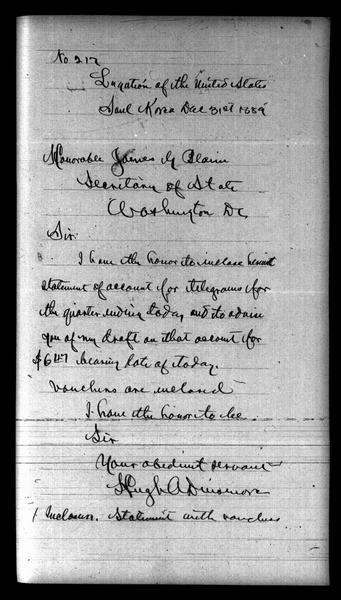 No 217
Legation of the United States
Soul Korea Dec 31st 1889
Honorable James G Blain
Secretary of State
Washington DC
Sir.
I have the honor to inclose herewith
statement of account for telegrams for
the quarter ending today and to advise
you of my draft on that account for
$6 bearing date of today.
Vouchers are inclosed
I have the honor to be
Sir
Your obedient servant
Hugh A Dinsmore
1 Inclosure. Statement with vouchers